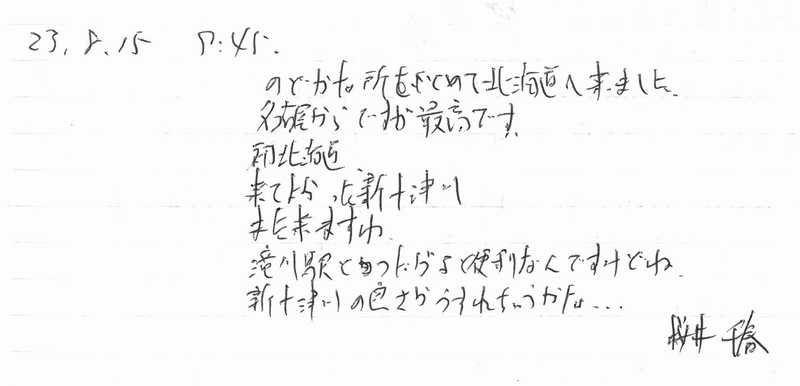 23.8.15 9:45.
のどかな所をもとめて北海道へ来ました.
名古屋からですが最高です.
初北海道.
来てよかった新十津川
また来ますね.
滝川駅とつながると便利なんですけどね.
新十津川の良さがうすれちゃうかな...
桜井 千春